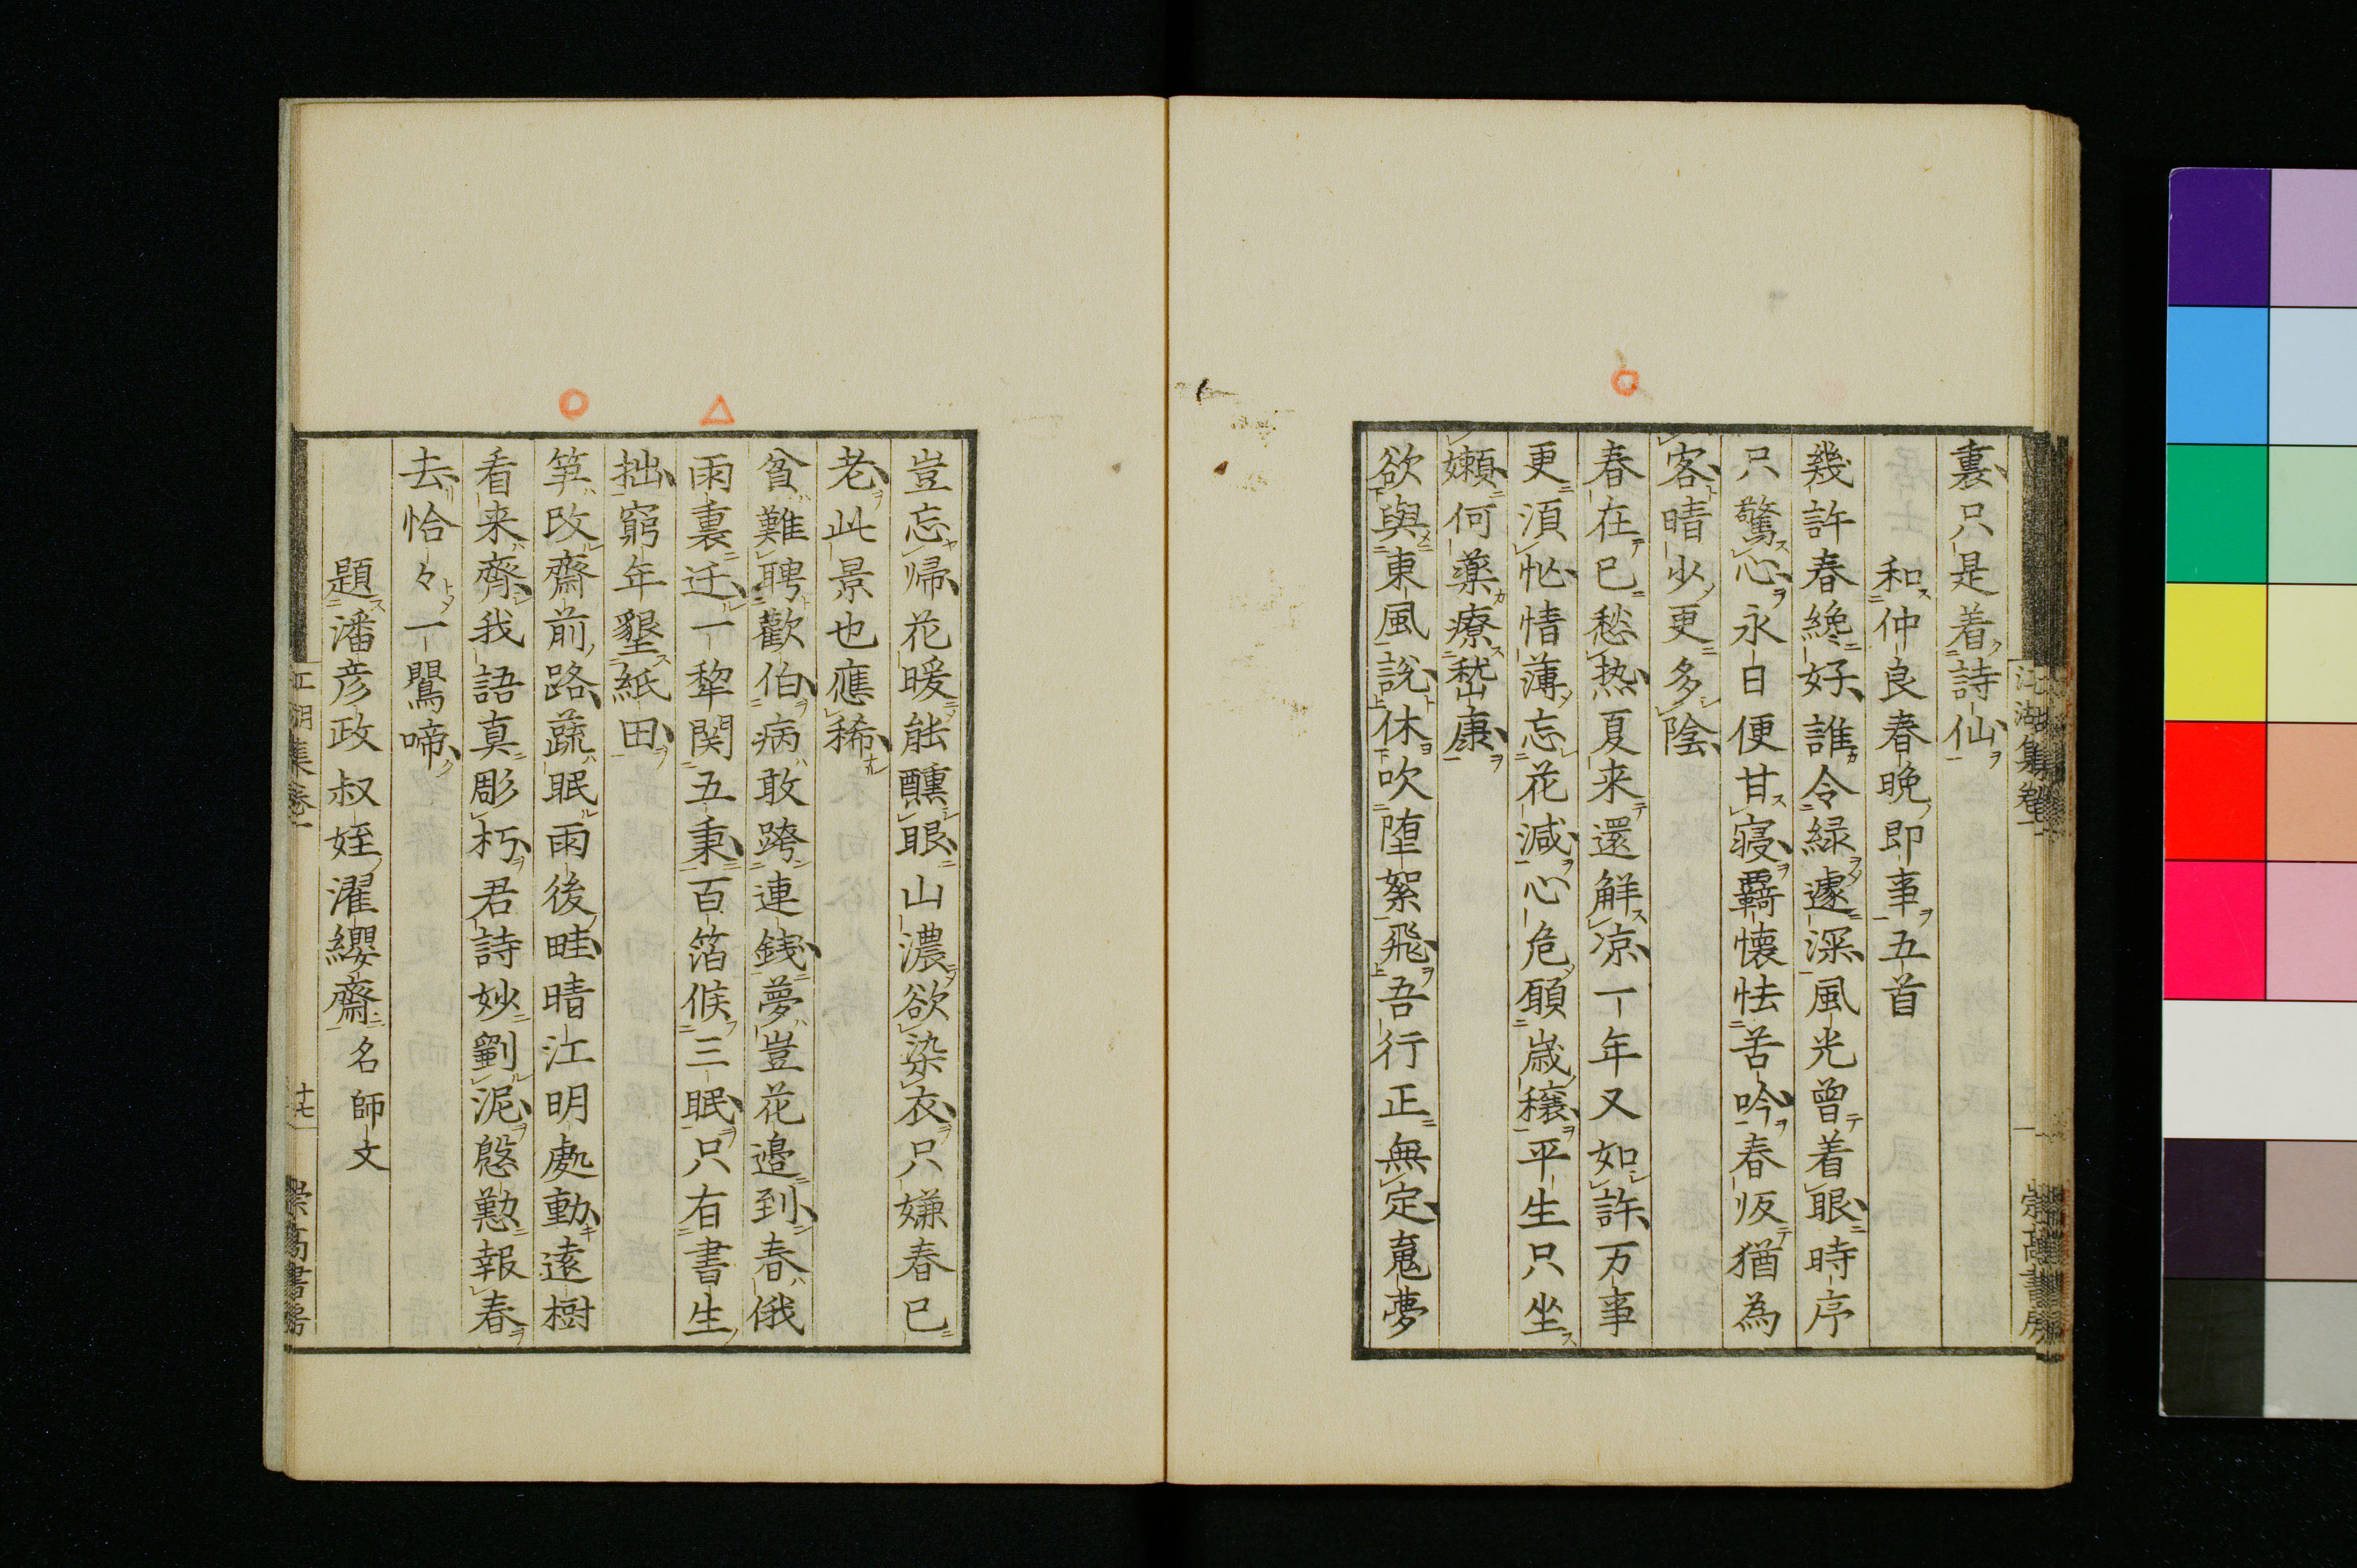 裏只是着詩仙
和仲良春晩即事五首
幾許春纔好誰令緑遽深風光曾着眼時序
只驚心永日便甘寝羇懐怯苦吟春皈猶為
客晴少更多陰
春在已愁热夏来還解凉一年又如許万事
更須怭情薄忘花减心危願歳穰平生只坐
嬾何薬療嵇康
欲與東風説休吹堕絮飛吾行正無定䰟夢
豈忘帰花暖能醺眼山濃欲染衣只嫌春已
老此景也應稀
貧難聘歡伯病敢跨連銭夢豈花邉到春俄
雨裏迁一犂関五秉百箔候三眠只有書生
拙窮年墾紙田
笋改齋前路蔬眠雨後畦晴江明處動遠樹
看来齊我語真彫朽君詩妙劉泥慇懃報春
去恰々一鸎啼
題潘彦政叔姪濯纓齋名師文
江湖集卷一
十七
崇高書房